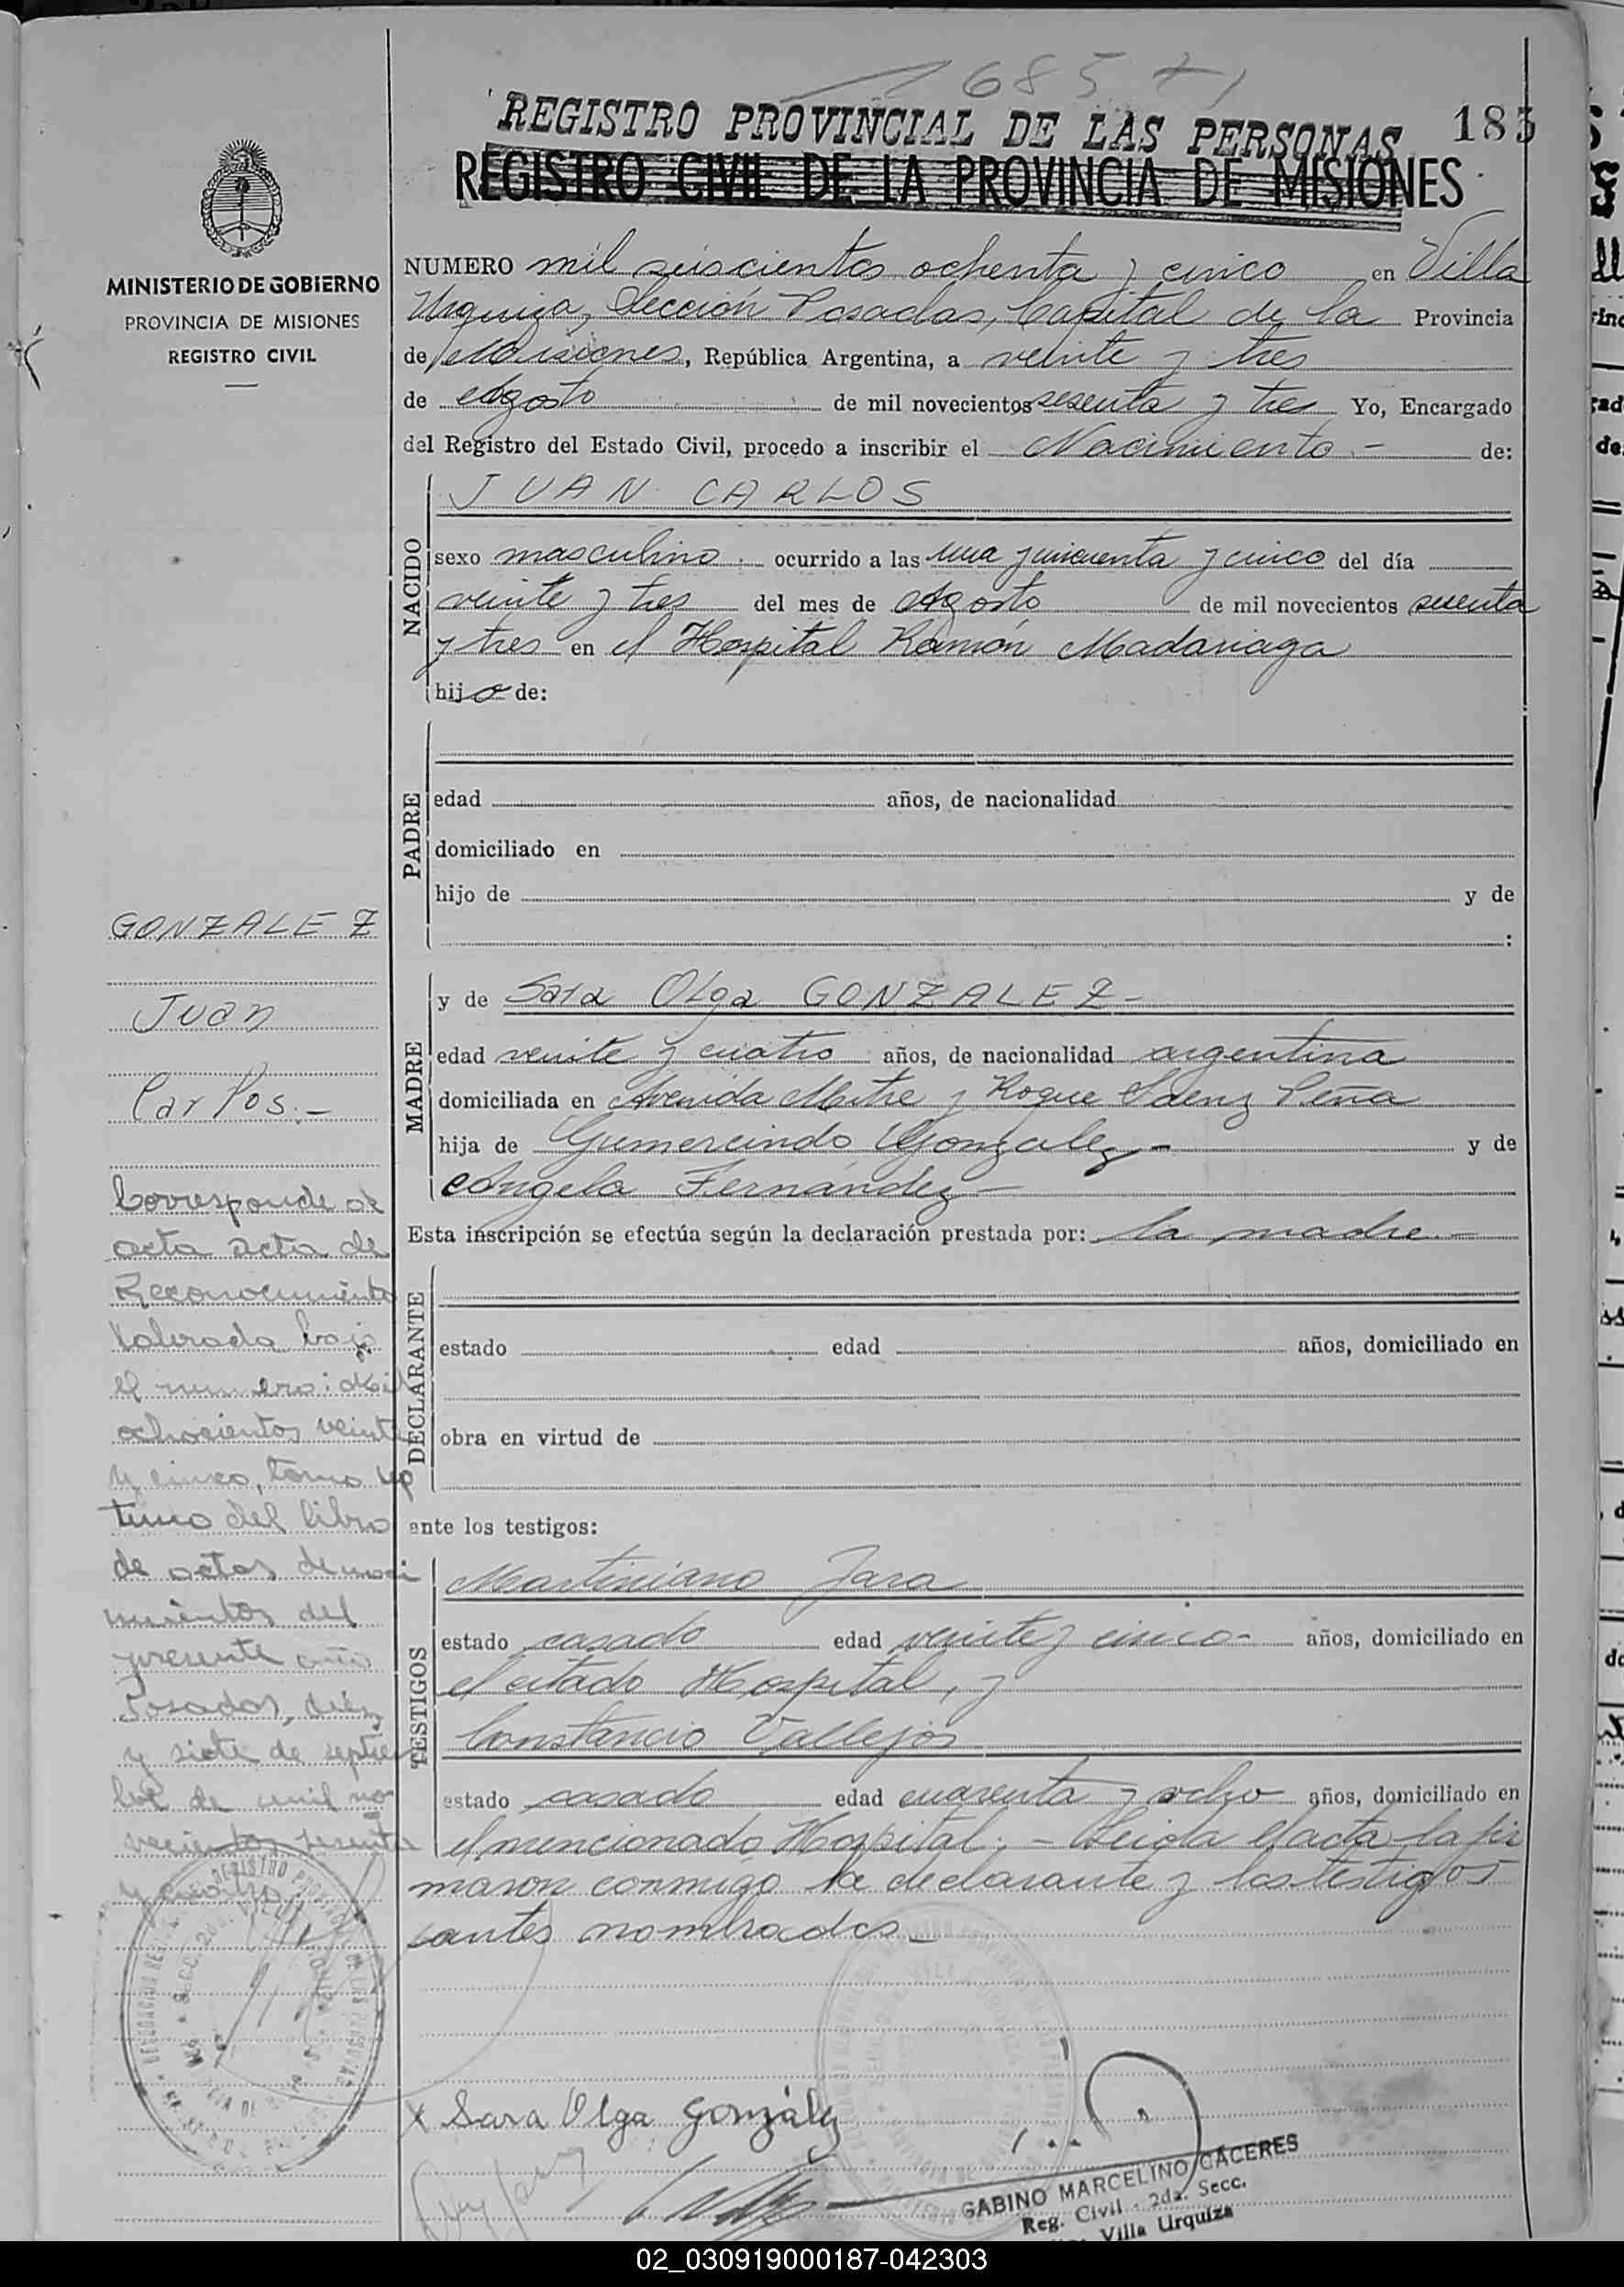 168571
REGISTRO PROVINCIAL DE LAS PERSONAS
183
REGISTRO CIVIL DE LA PROVINCIA DE MISIONES
MINISTERIO DE GOBIERNO
PROVINCIA DE MISIONES
REGISTRO CIVIL
NUMERO mil seiscientos ochenta y cinco en Villa
Urquiza, Sección Posadas, Capital de la Provincia
de Misiones, República Argentina, a veinte y tres
de Agosto de mil novecientos sesenta y tres Yo, Encargado
del Registro del Estado Civil, procedo a inscribir el Nacimiento.- de:
NACIDO
JUAN CARLOS
sexo masculino ocurrido a las una y cincuenta y cinco del día
veinte y tres del mes de Agosto de mil novecientos sesenta
y tres en el Hospital Ramón Madariaga
hijo de:
PADRE
edad años, de nacionalidad
domiciliado en
hijo de y de
:
GONZALEZ
Juan
Carlos.-
MADRE
y de Sara Olga GONZALEZ-
edad veinte y cuatro años, de nacionalidad argentina
domiciliada en Avenida Mitre y Roque Saenz Peña
hija de Gumercindo Gonzalez - y de
Angela Fernández -
Esta inscripción se efectúa según la declaración prestada por: la madre.-
DECLARANTE
estado edad años, domiciliado en
obra en virtud de
ante los testigos:
TESTIGOS
Martiniano Jara
estado casado edad veinte y cinco- años, domiciliado en
el citado Hospital, y
Constancio Vallejos
estado casado edad cuarenta y ocho años, domiciliado en
el mencionado Hospital.- Leida el acta la fir
maron conmigo la declarante y los testigos
antes nombrados-
Corresponde al
acta acta de
Reconocimiento
labrada bajo
el numero: Mil
ochocientos veinte
y cinco, tomo sép
timo del libro
de actas de naci
mientos del
presente año
Posadas, diez
y siete de septiem
bre de mil no
vecientos sesenta
x Sara Olga González
GABINO MARCELINO CÁCERES
Reg. Civil - 2da. Secc.
Villa Urquiza
02_030919000187-042303